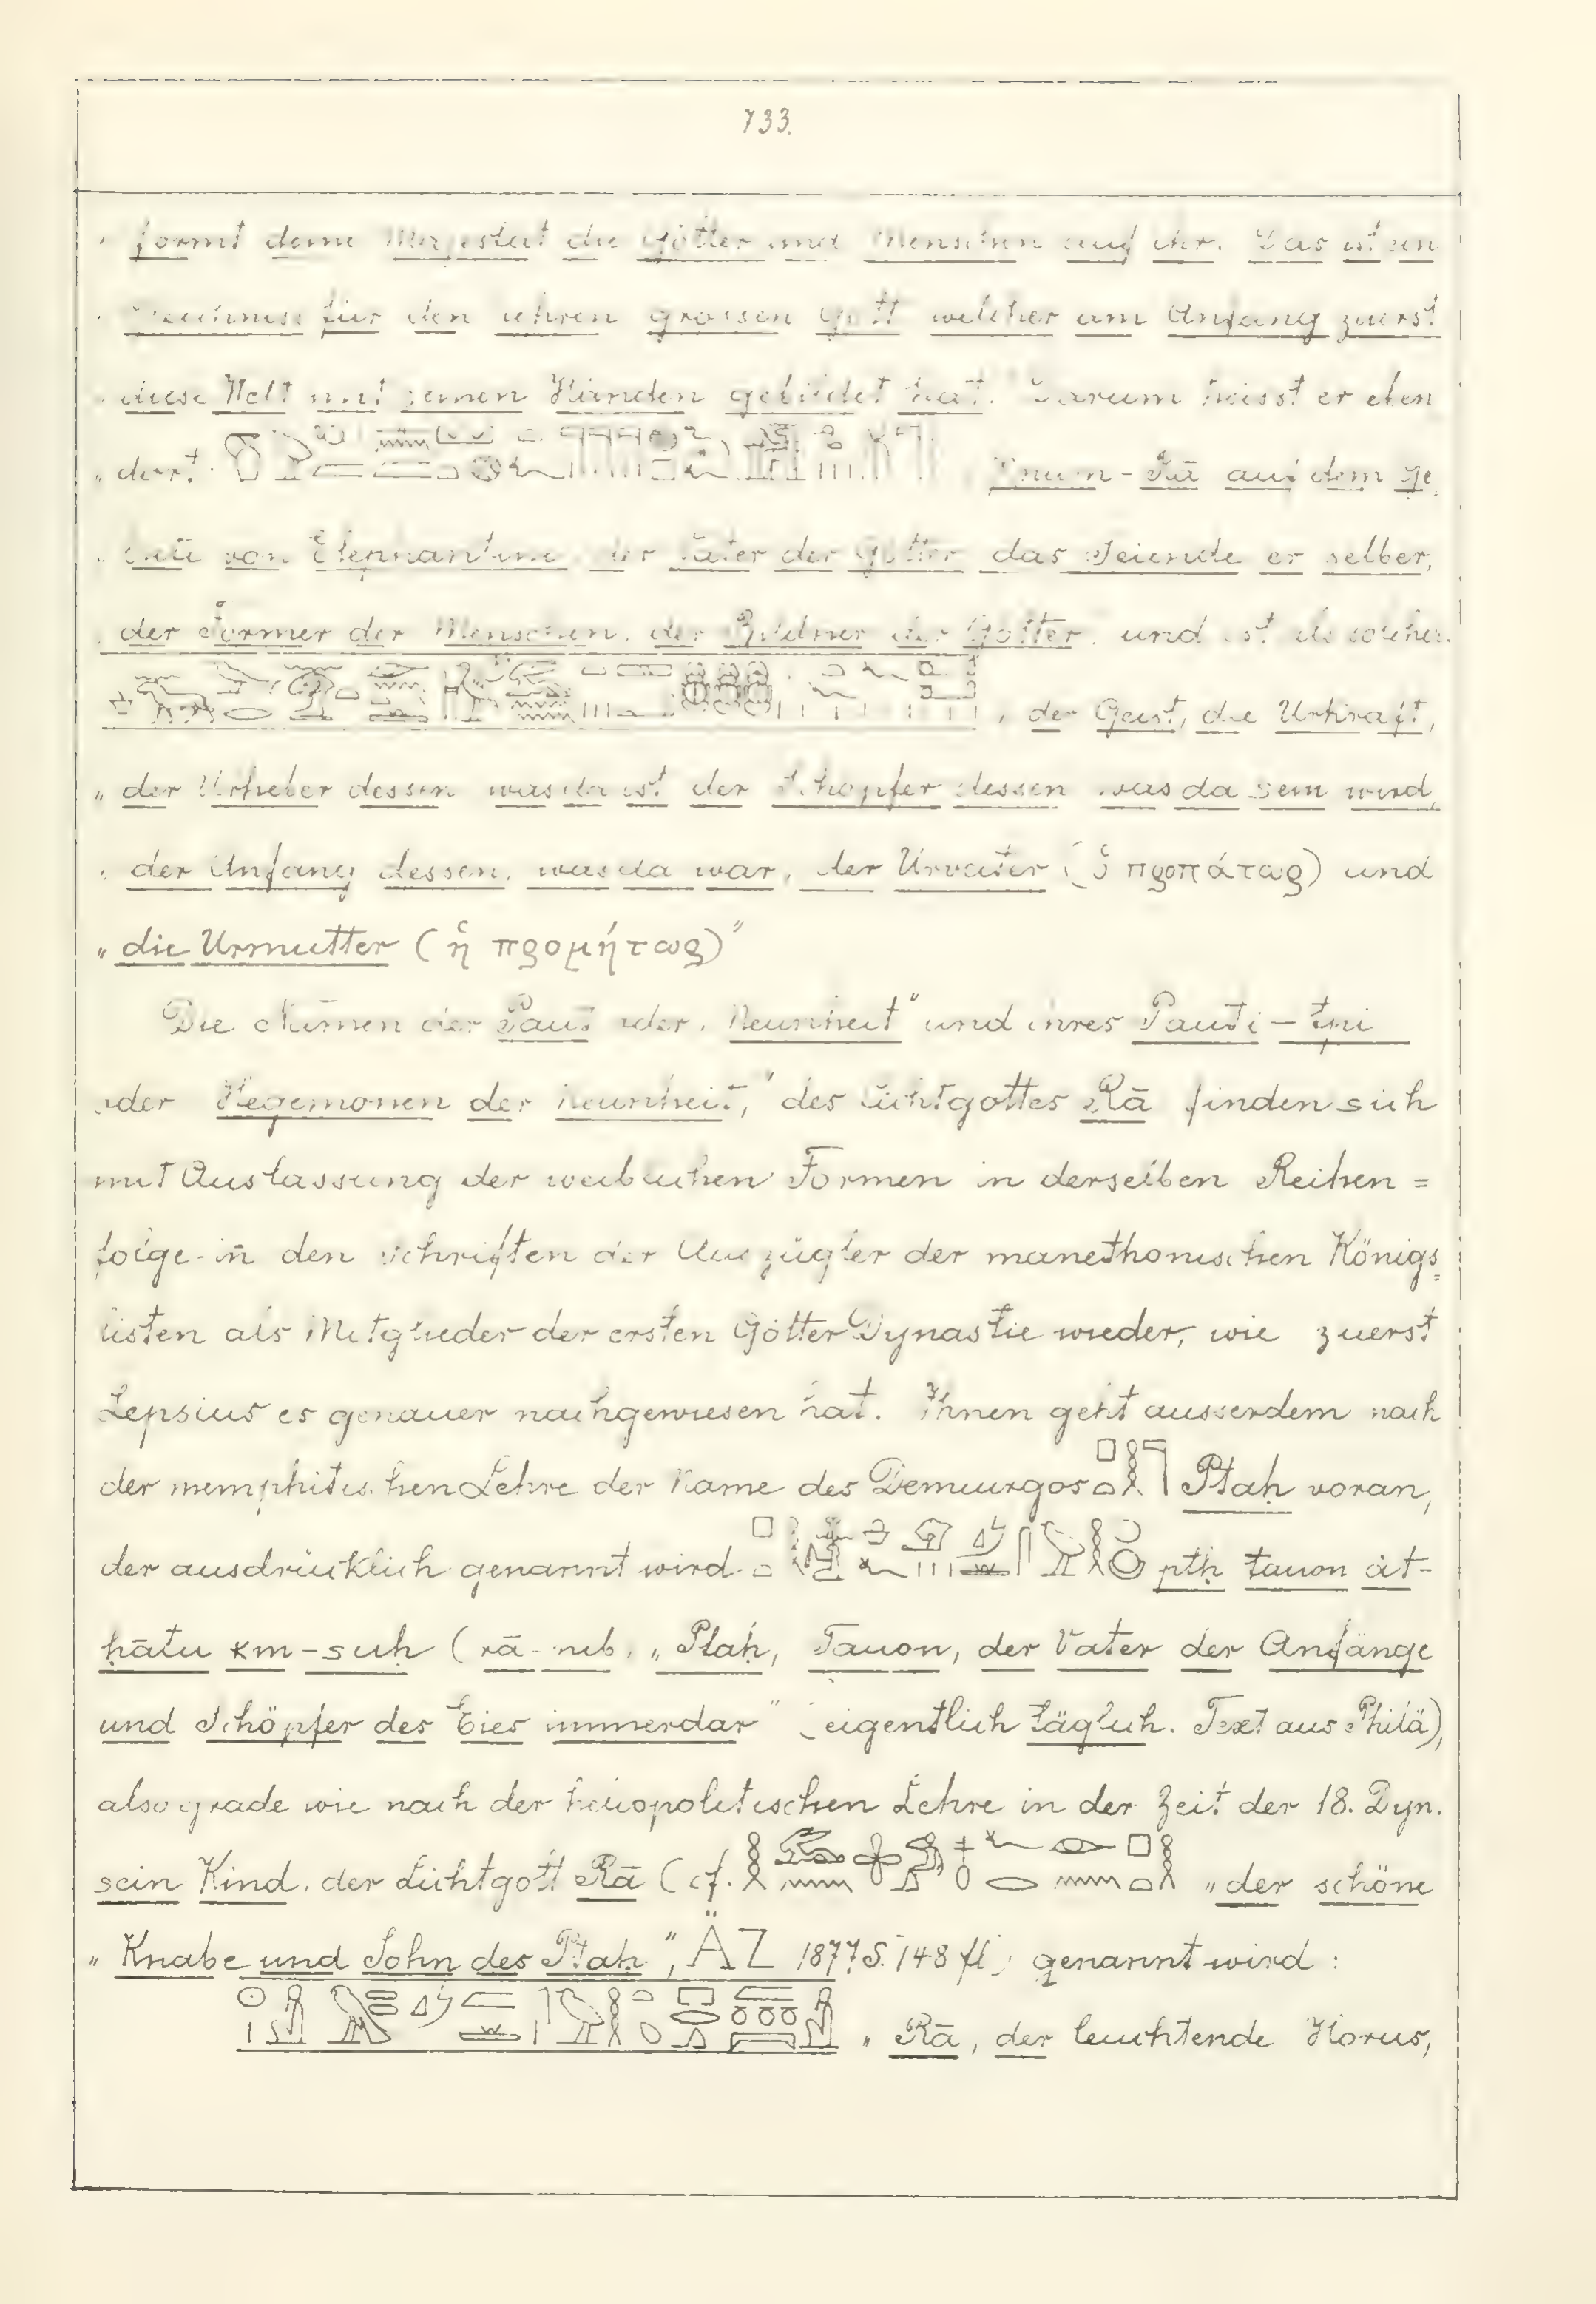 733.
formt deine Majestät die Götter und Menschen auf ihr. Das ist ein
für den hehren grossen Gott welcher am Anfang zuerst
diese Welt mit seinen Händen gebildet hat. Darum heisst er eben
„dort: Xnum-Rā aus dem Ge
von Elephantine, der Vater der Götter das Seiende er selber,
der Former der Menschen, der Bildner der Götter, und ist als solcher:
, der Geist, die Urkraft,
„der Urheber dessen was da ist der Schöpfer dessen was da sein wird,
der Anfang dessen, was da war, der Urvater (ὁ προπάτωρ) und
„die Urmutter (ἡ προμήτωρ)"
Die Namen der Paut oder „Neunheit" und ihres Pauti-tpi
oder Hegemonen der Neunheit," des Lichtgottes Rā finden sich
mit Auslassung der weiblichen Formen in derselben Reihen=
folge in den Schriften der Auszügler der manethonischen Königs=
listen als Mitglieder der ersten Götter Dynastie wieder, wie zuerst
Lepsius es genauer nachgewiesen hat. Ihnen geht ausserdem nach
der memphitischen Lehre der Name des Demiurgos Ptaḥ voran,
der ausdrücklich genannt wird: ptḥ tauon àt-
ḥātu ḳm-suḥ (rā-nib, „Ptaḥ, Tauon, der Vater der Anfänge
und Schöpfer des Eies immerdar" (eigentlich täglich. Text aus Philä),
also grade wie nach der heliopolitischen Lehre in der Zeit der 18. Dyn.
sein Kind, der Lichtgott Rā (cf. „der schöne
„Knabe und Sohn des Ptaḥ", ÄZ 1877. S. 148 fl) genannt wird:
„Rā, der leuchtende Horus,